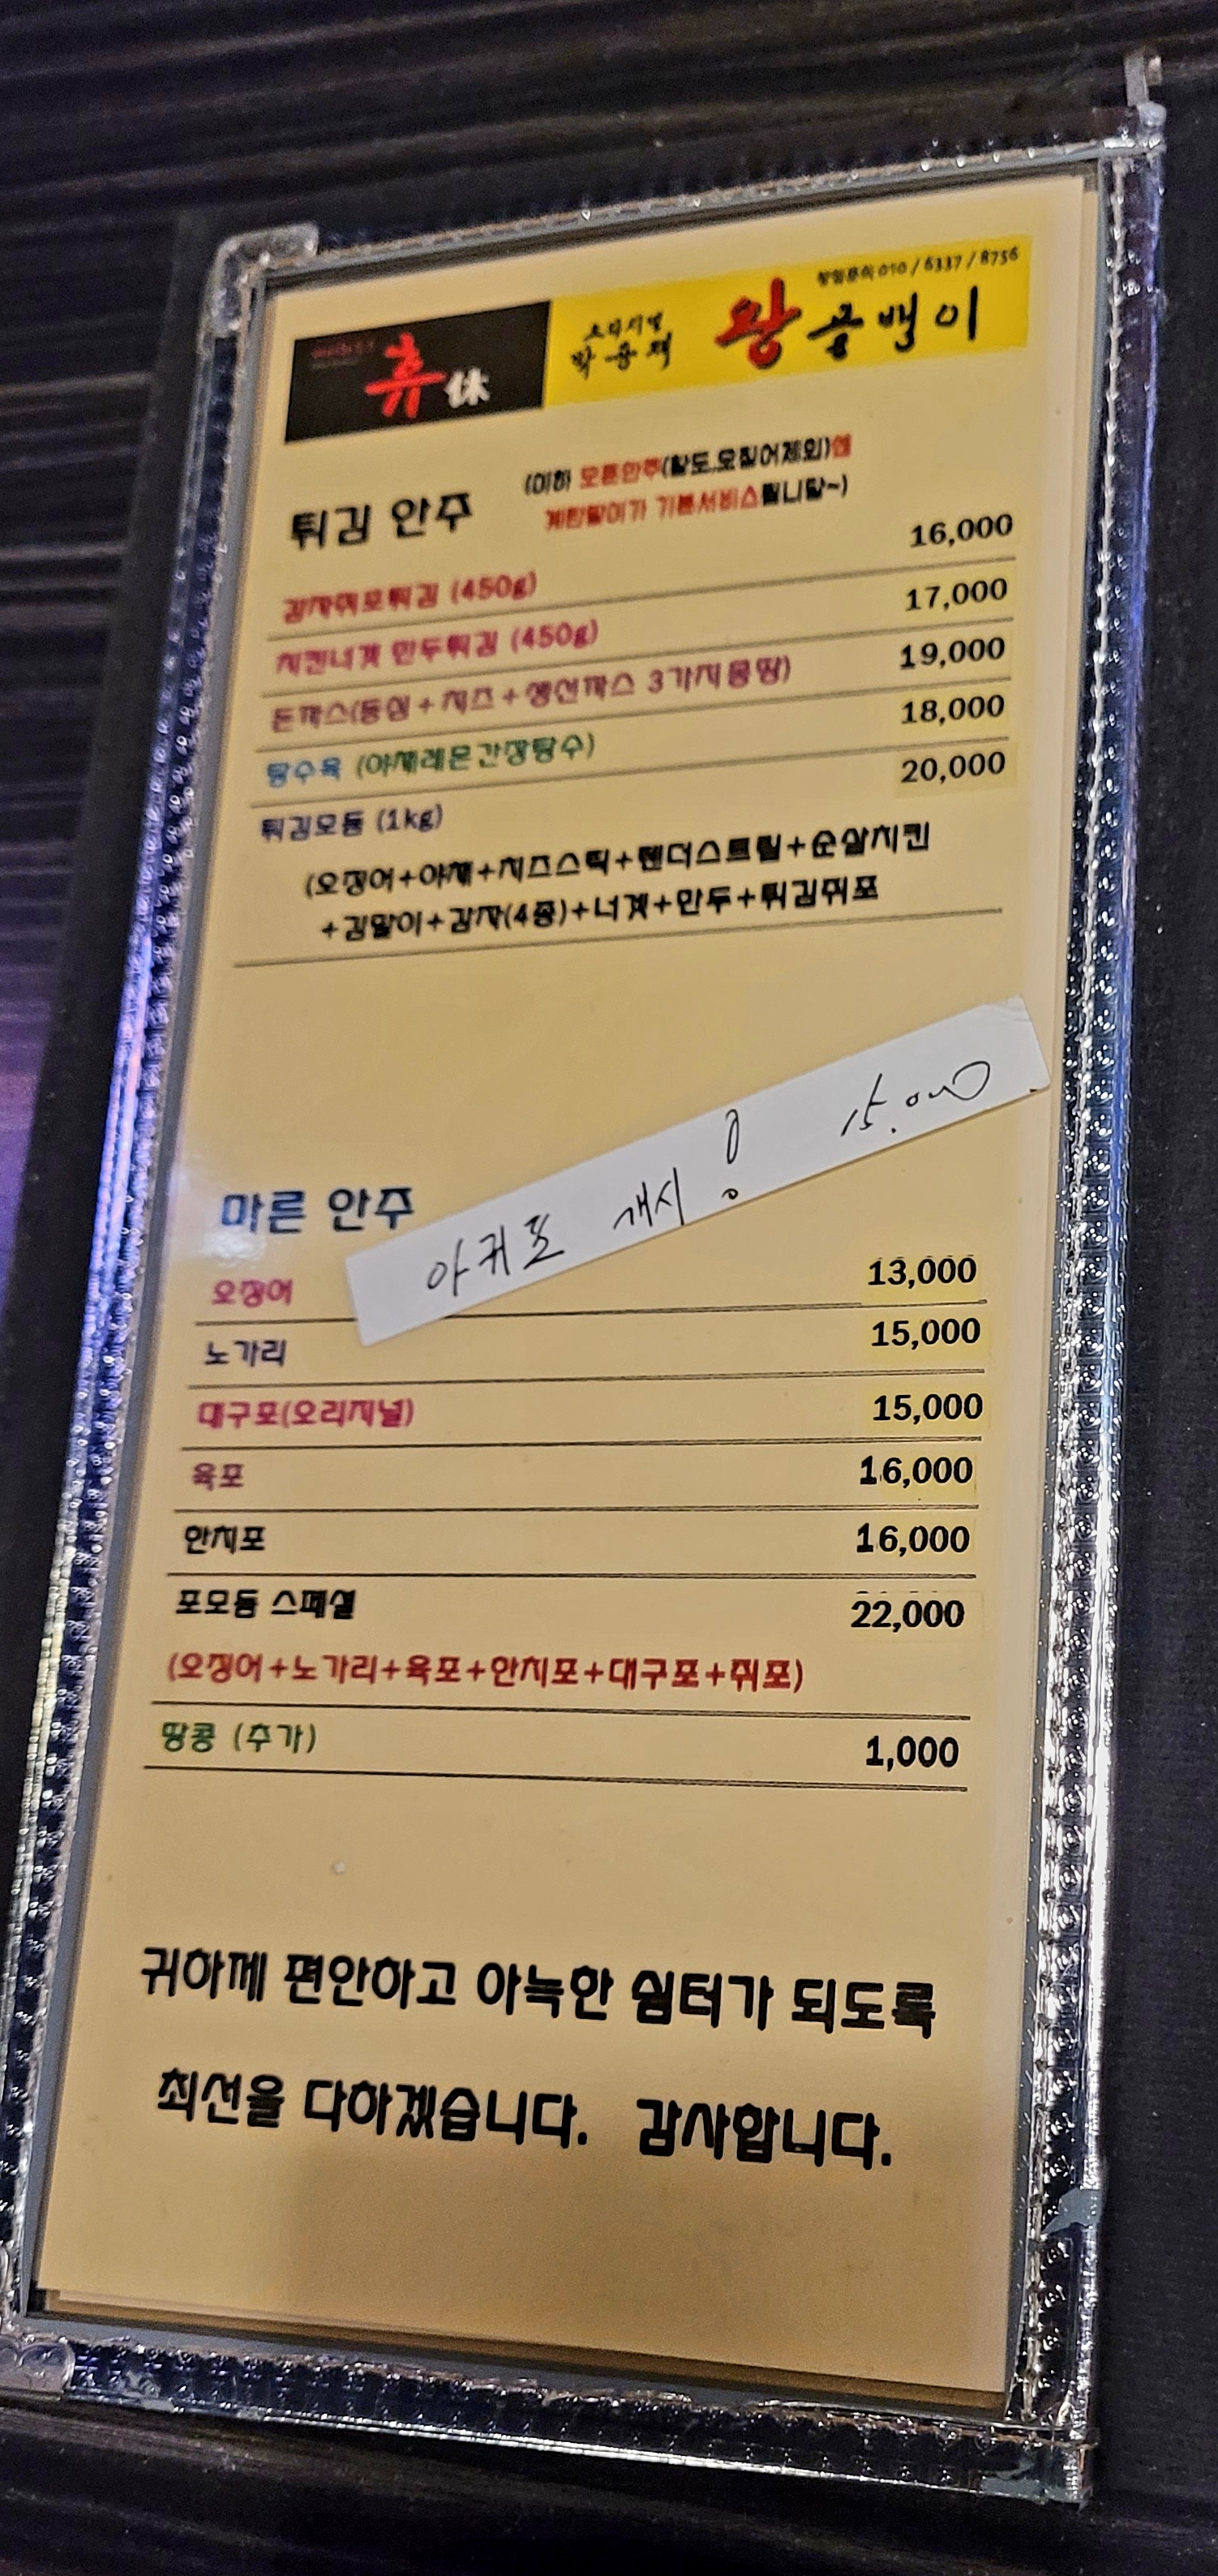 휴 休
창업문의 010 / 6337 / 8756
오리지널
왕 골뱅이
튀김 안주
(이하 모든안주(황도,오징어제외)엔
계란말이가 기본서비스됩니닿~)
감자쥐포튀김 (450g) 16,000
치킨너겟 만두튀김 (450g) 17,000
돈까스(등심+치즈+생선까스 3가지몽땅) 19,000
탕수육 (야채레몬간장탕수) 18,000
튀김모듬 (1kg) 20,000
(오징어+야채+치즈스틱+텐더스트립+순살치킨
+김말이+감자(4종)+너겟+만두+튀김쥐포
아귀포 개시! 15.000
마른 안주
오징어 13,000
노가리 15,000
대구포(오리지널) 15,000
육포 16,000
한치포 16,000
포모듬 스페셜 22,000
(오징어+노가리+육포+한치포+대구포+쥐포)
땅콩 (추가) 1,000
귀하께 편안하고 아늑한 쉼터가 되도록
최선을 다하겠습니다. 감사합니다.